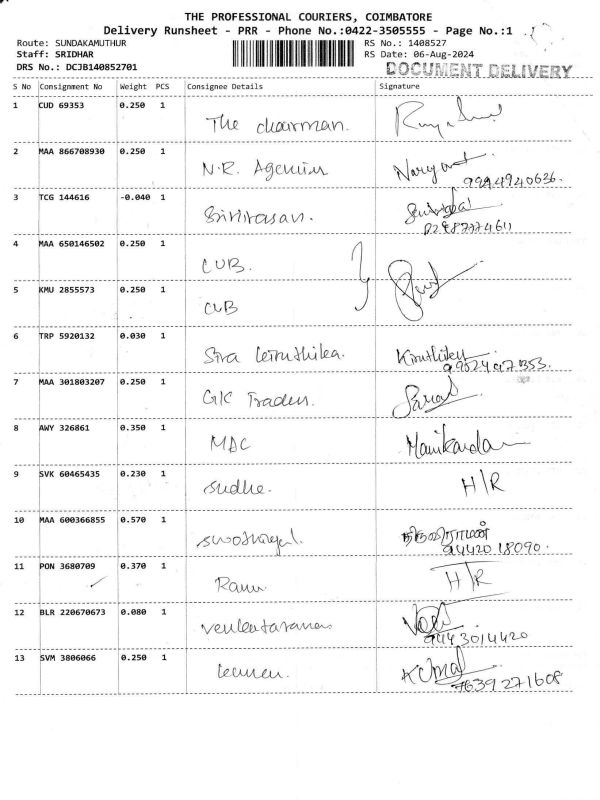 THE PROFESSIONAL COURIERS, COIMBATORE
Delivery Runsheet - PRR - Phone No.:0422-3505555 - Page No.:1
Route: SUNDAKAMUTHUR
RS No.: 1408527
Staff: SRIDHAR
RS Date: 06-Aug-2024
DRS No.: DCJB140852701
DOCUMENT DELIVERY
S No Consignment No Weight PCS Consignee Details Signature
1 CUD 69353 0.250 1
The chairman.
2 MAA 866708930 0.250 1
N.R. Agencies
9994940636.
3 TCG 144616 -0.040 1
Srinivasan.
4 MAA 650146502 0.250 1
CUB.
5 KMU 2855573 0.250 1
CUB
6 TRP 5920132 0.030 1
Siva Kiruthika. Kiruthika
7 MAA 301803207 0.250 1
GK Traders.
8 AWY 326861 0.350 1
MAC Manikandan
9 SVK 60465435 0.230 1
sudha. H/R
10 MAA 600366855 0.570 1
94420 18090.
11 PON 3680709 0.370 1
Ramu H/R
12 BLR 220670673 0.080 1
Venkataraman
9443014420
13 SVM 3806066 0.250 1
Kumar
7639271608